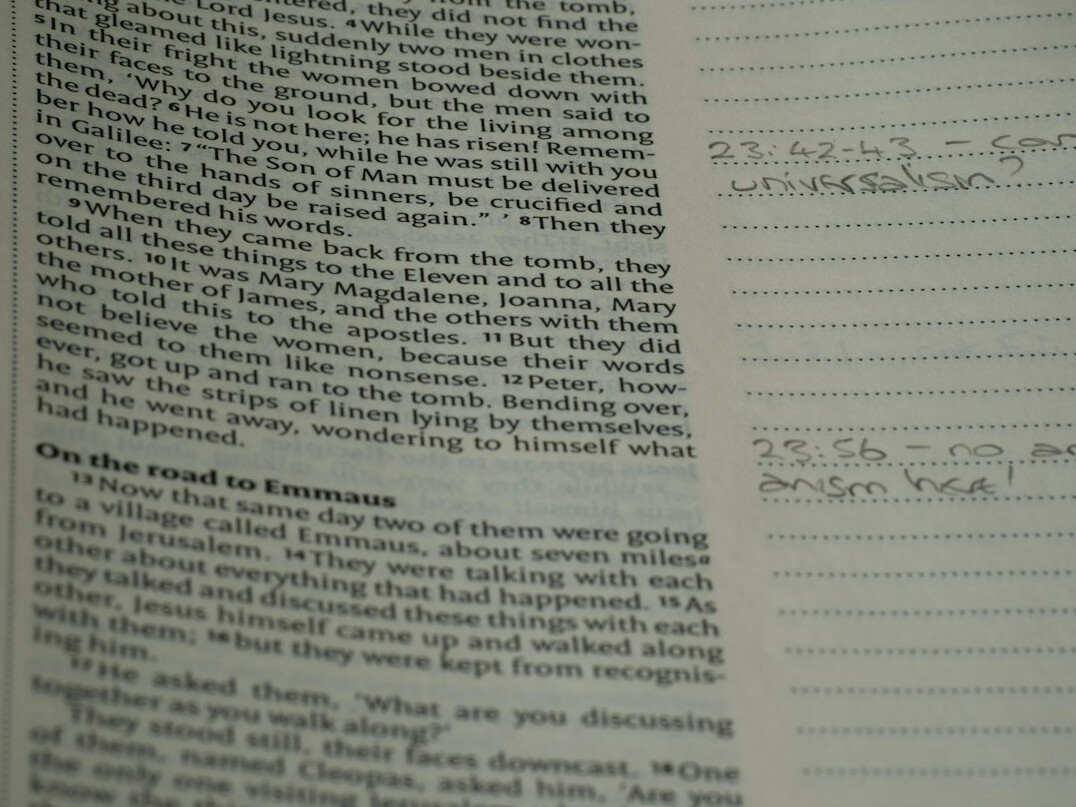 the tomb,
they did not find the
Lord Jesus. 4 While they were won-
about this, suddenly two men in clothes
that gleamed like lightning stood beside them.
5 In their fright the women bowed down with
their faces to the ground, but the men said to
them, 'Why do you look for the living among
the dead? 6 He is not here; he has risen! Remem-
ber how he told you, while he was still with you
in Galilee: 7 "The Son of Man must be delivered
over to the hands of sinners, be crucified and
on the third day be raised again." ' 8 Then they
remembered his words.
9 When they came back from the tomb, they
told all these things to the Eleven and to all the
others. 10 It was Mary Magdalene, Joanna, Mary
the mother of James, and the others with them
who told this to the apostles. 11 But they did
not believe the women, because their words
seemed to them like nonsense. 12 Peter, how-
ever, got up and ran to the tomb. Bending over,
he saw the strips of linen lying by themselves,
and he went away, wondering to himself what
had happened.
On the road to Emmaus
13 Now that same day two of them were going
to a village called Emmaus, about seven miles a
from Jerusalem. 14 They were talking with each
other about everything that had happened. 15 As
they talked and discussed these things with each
other, Jesus himself came up and walked along
with them; 16 but they were kept from recognis-
ing him.
17 He asked them, 'What are you discussing
together as you walk along?'
They stood still, their faces downcast. 18 One
of them, named Cleopas, asked him, 'Are you
the only one visiting
23:42-43 -
universalism?
23:56 - no
anism here!